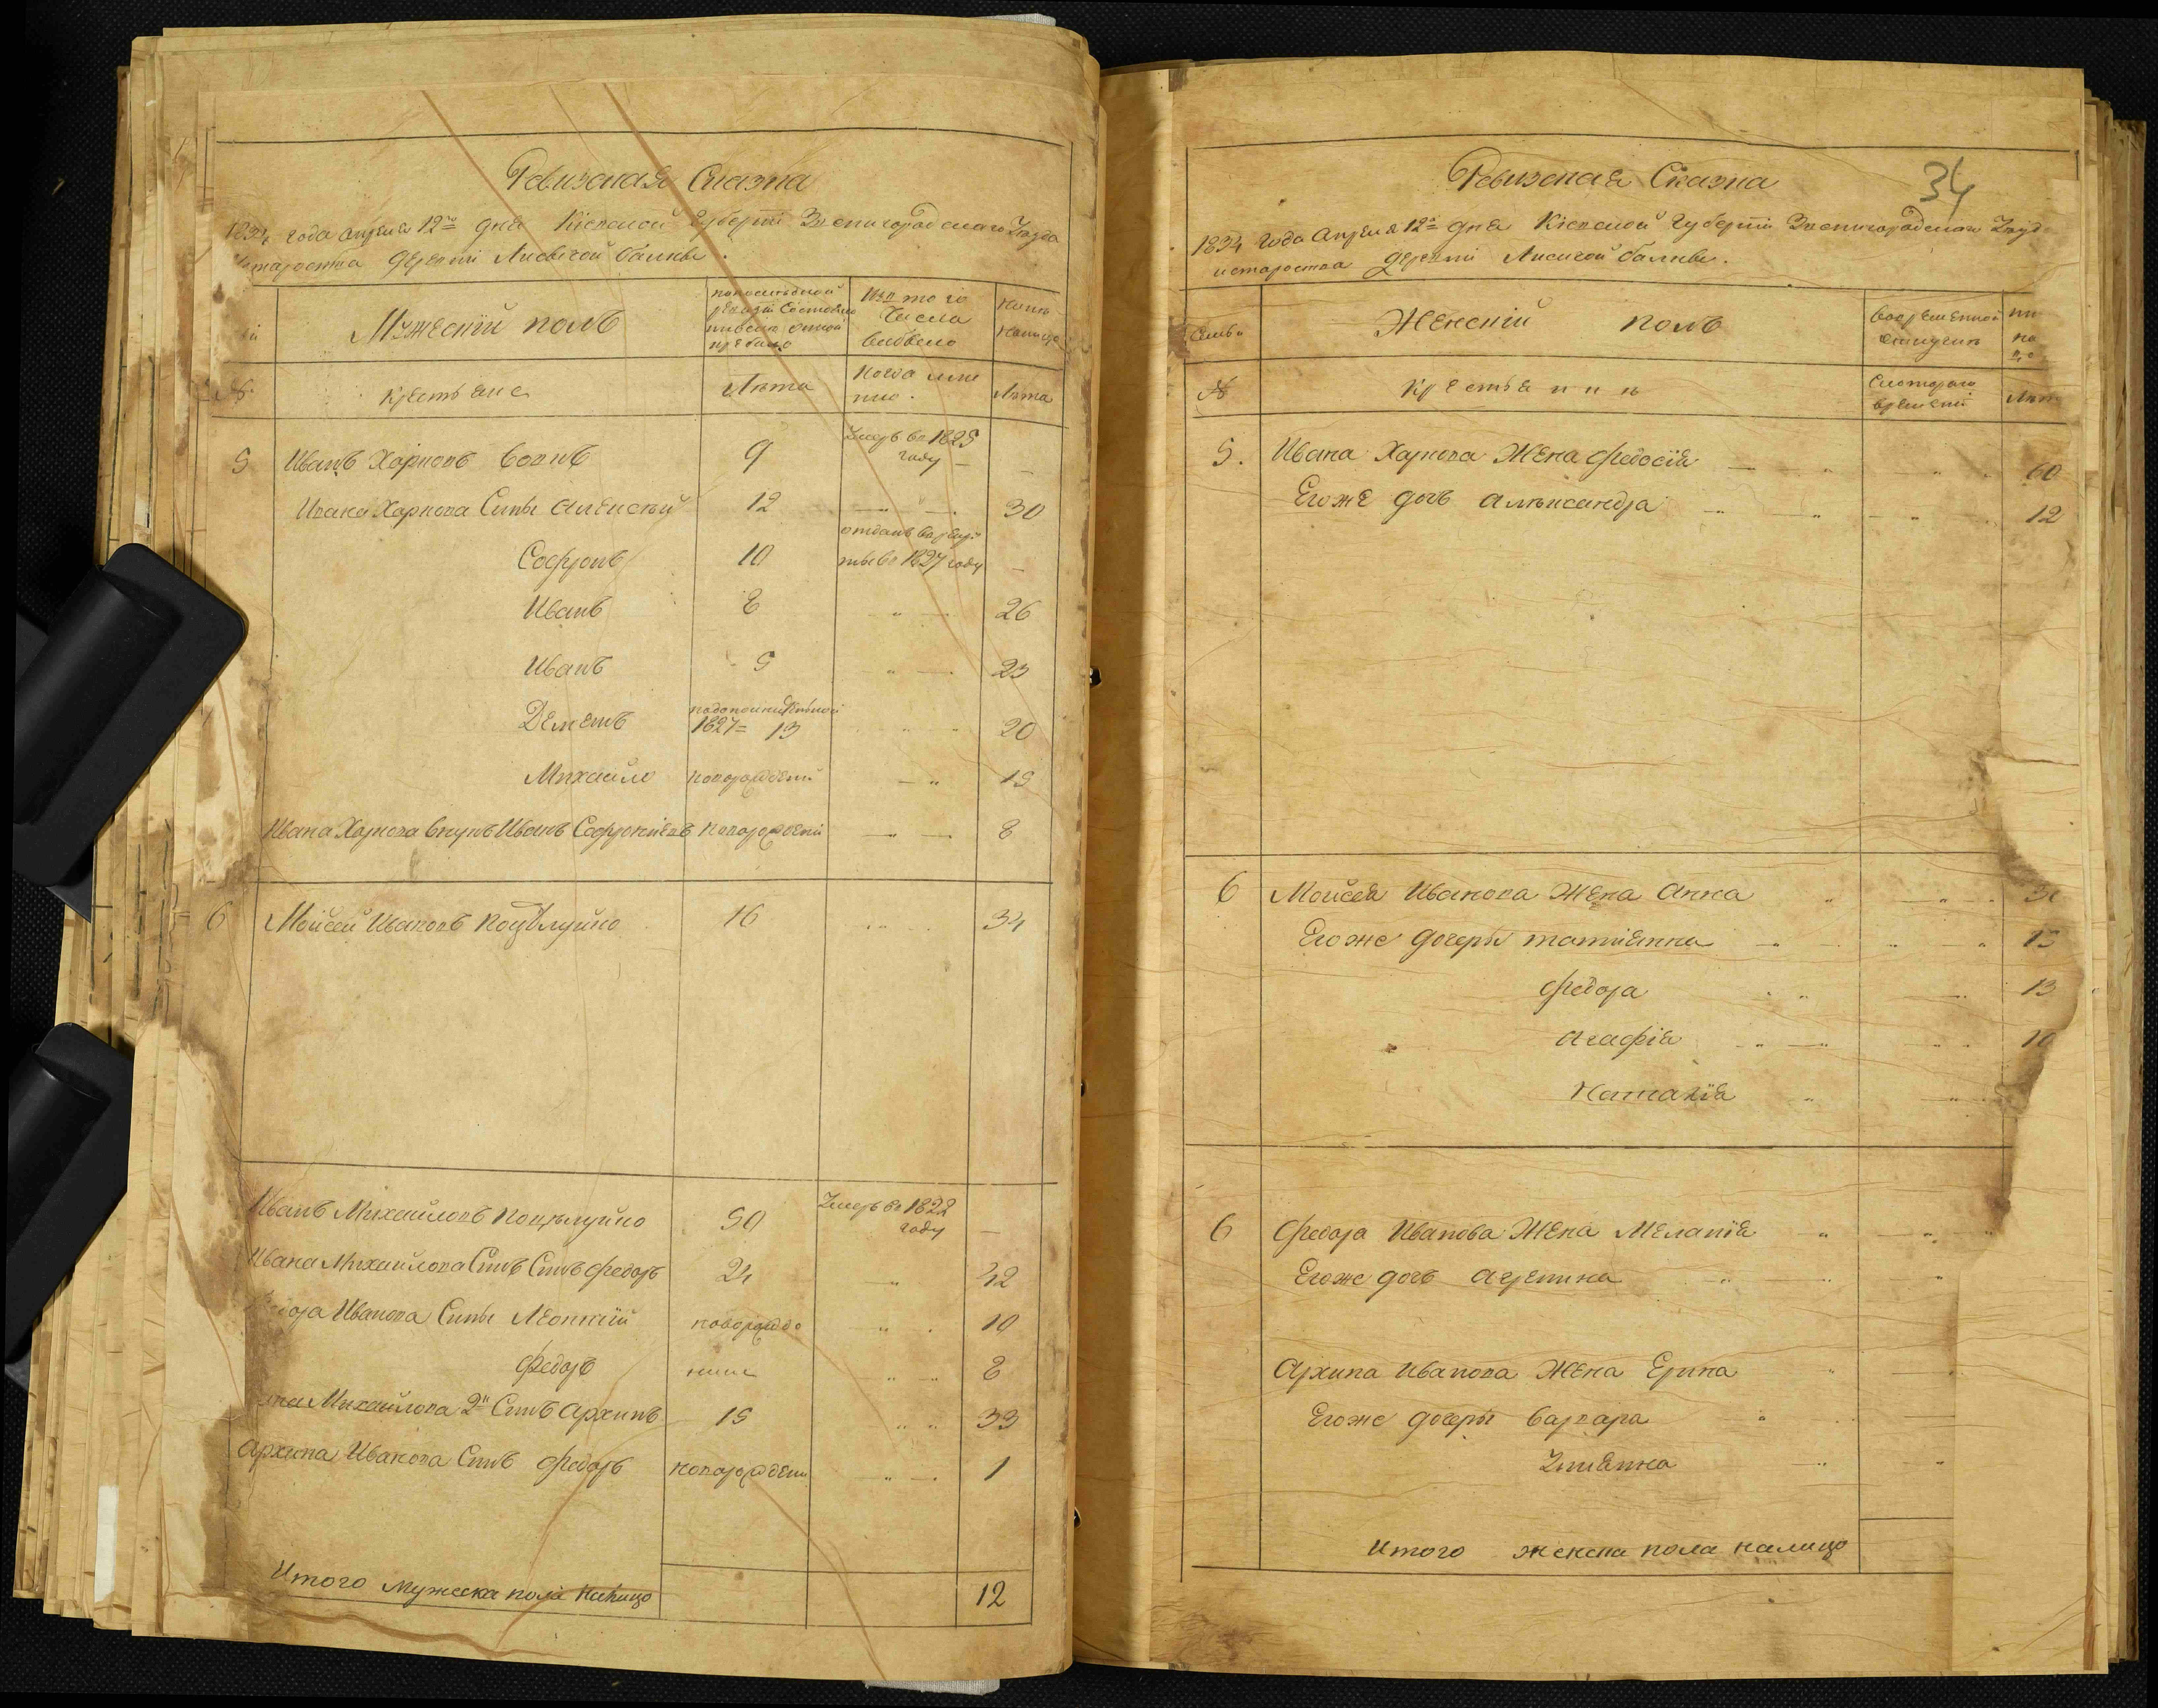 Ревизская Сказка
1834 года Апреля 12го дня Кіевской Губерніи Звенигородскаго Уезда
староства деревни Лисичой балки.
Мужескій полъ
Изъ того
числа
выбыло
ныне
налицо
№
крестьяне
Лѣта
когда име
нно.
Лѣта
5 Иванъ Харковъ Вовкъ 9 Умеръ въ 1825
году — —
Ивана Харкова Сыны Алексѣй 12 30
отданъ в рекру
Софронъ 10 ты въ 1827 году —
Иванъ 8 26
Иванъ 5 23
Дементъ 1827 = 13 20
Михайло новорожденій 15
Ивана Харкова внукъ Иванъ Софроніевъ новорожденій 8
6 Мойсей Ивановъ Поцѣлуйко 16 34
Иванъ Михайловъ Поцѣлуйко 50 Умеръ въ 1822
году —
Ивана Михайлова Сынъ Сынъ Федоръ 24 42
Иванова Сыны Леонтій новорожде 10
Федоръ ніи 8
Михайлова 2й Сынъ Архипъ 15 33
Архипа Иванова Сынъ Федоръ новорожденій 1
Итого мужеска пола налицо 12
34
Ревизская Сказка
1834 года Апреля 12го дня Кіевской Губерніи Звенигородскаго Уезд
староства деревни Лисичой балки.
Семьи
Женскій полъ
во временной
отлучки
№
крестьянки
Скотораго
времени
Лѣт
5. Ивана Харкова Жена Федосія 60
Егоже дочь Алѣксандра 12
6 Мойсея Иванова Жена Анна
Егоже дочери татіянна 15
Федора 13
Агафія 10
Наталія
6 Федора Иванова Жена Меланія
Егоже дочь Агрепина
Архипа Иванова Жена Ерина
Егоже дочери Варвара
Уліянна
Итого женска пола налицо